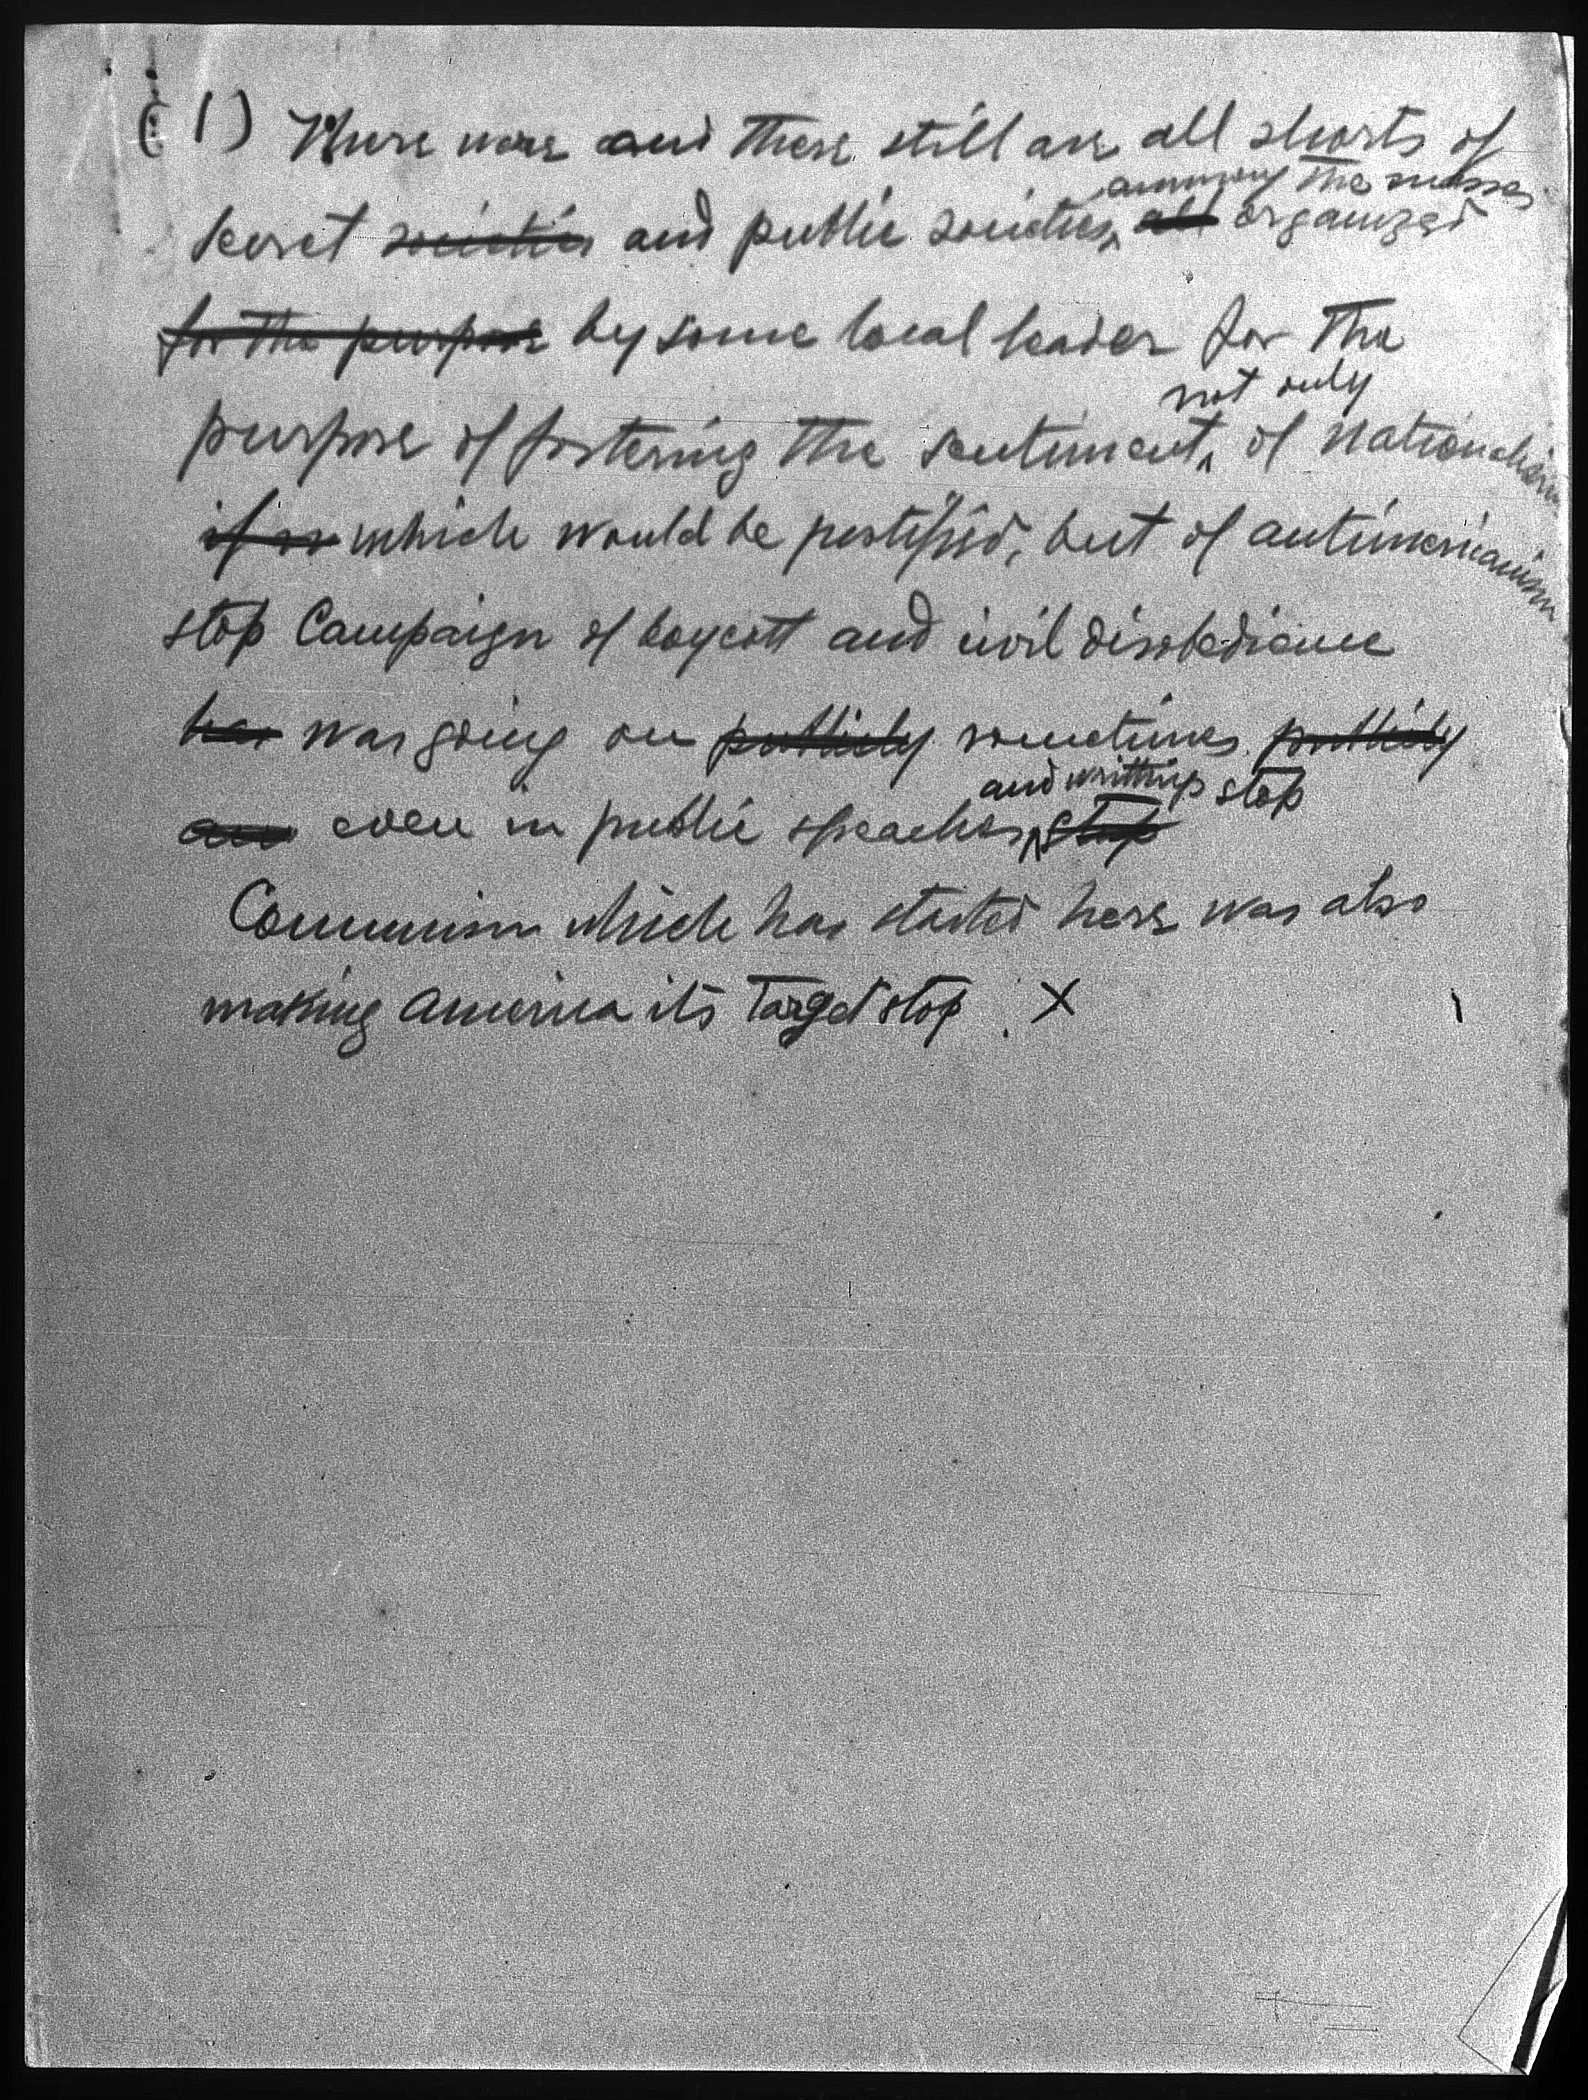 (1) There were and there still are all shorts of
among the masses
secret societies and public societies, all organized
for the purpose by some local leader for the
not only
purpose of fostering the sentiment, of nationalism
if so which would be justified, but of antiamericanism
stop Campaign of boycott and civil disobedience
has was going on publicly sometimes publicly
and even in public speaches, stop
and writtings stop
Communism which has started here was also
making America its target stop . X